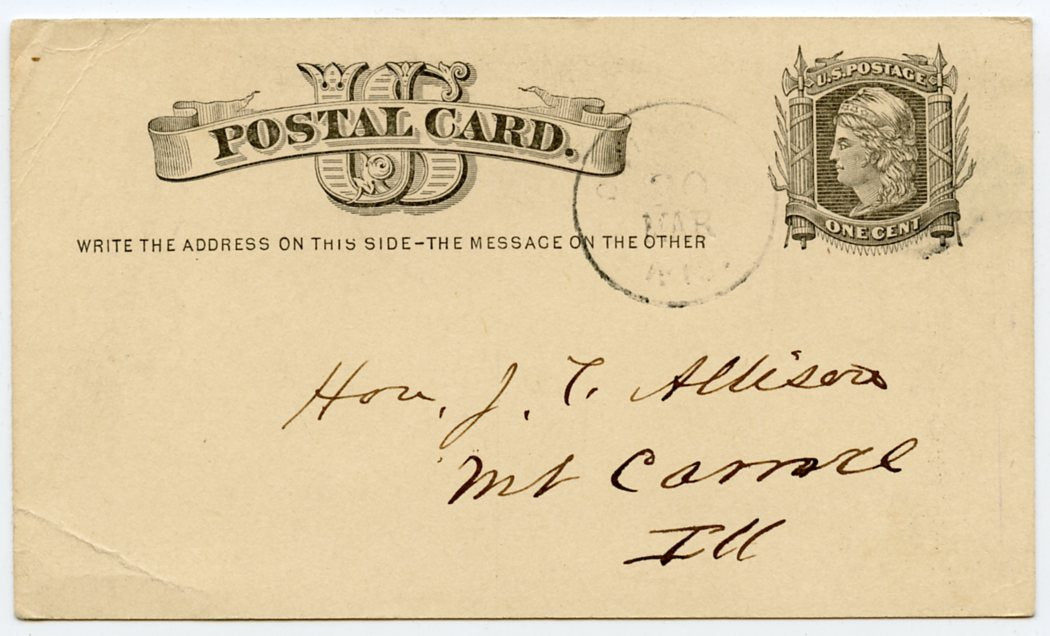 US
POSTAL CARD.
U.S. POSTAGE
ONE CENT
WRITE THE ADDRESS ON THIS SIDE-THE MESSAGE ON THE OTHER
MAR
Hon. J. T. Allison
Mt Carroll
Ill